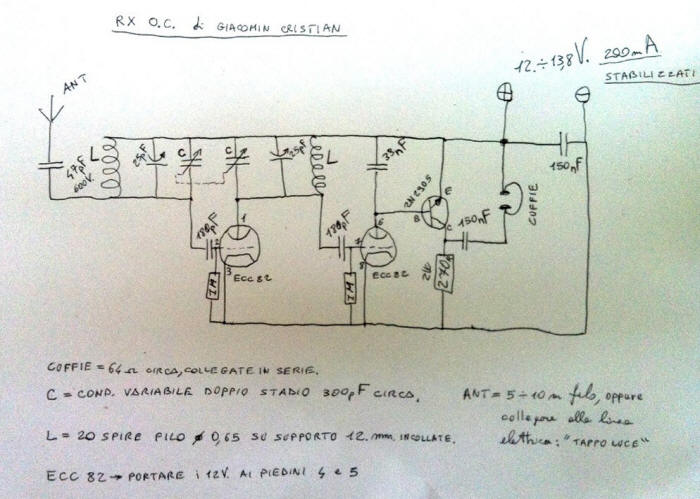 RX O.C. di GIACOMIN CRISTIAN
12.÷13,8V. 200mA
STABILIZZATI
ANT
47pF
600V.
L
25pF
C
C
25pF
L
33nF
2N2905
E
B
C
150nF
150nF
CUFFIE
180pF
1
2
3
ECC82
1M
180pF
6
7
8
ECC82
1M
2W
270Ω
COFFIE = 64Ω CIRCA, COLLEGATE IN SERIE.
C = COND. VARIABILE DOPPIO STADIO 300pF CIRCA.
L = 20 SPIRE FILO ø 0,65 SU SUPPORTO 12.mm. INCOLLATE.
ECC 82 → PORTARE i 12V. AI PIEDINI 4 e 5
ANT = 5÷10 m filo, oppure
collegare alla linea
elettrica: "TAPPO LUCE"